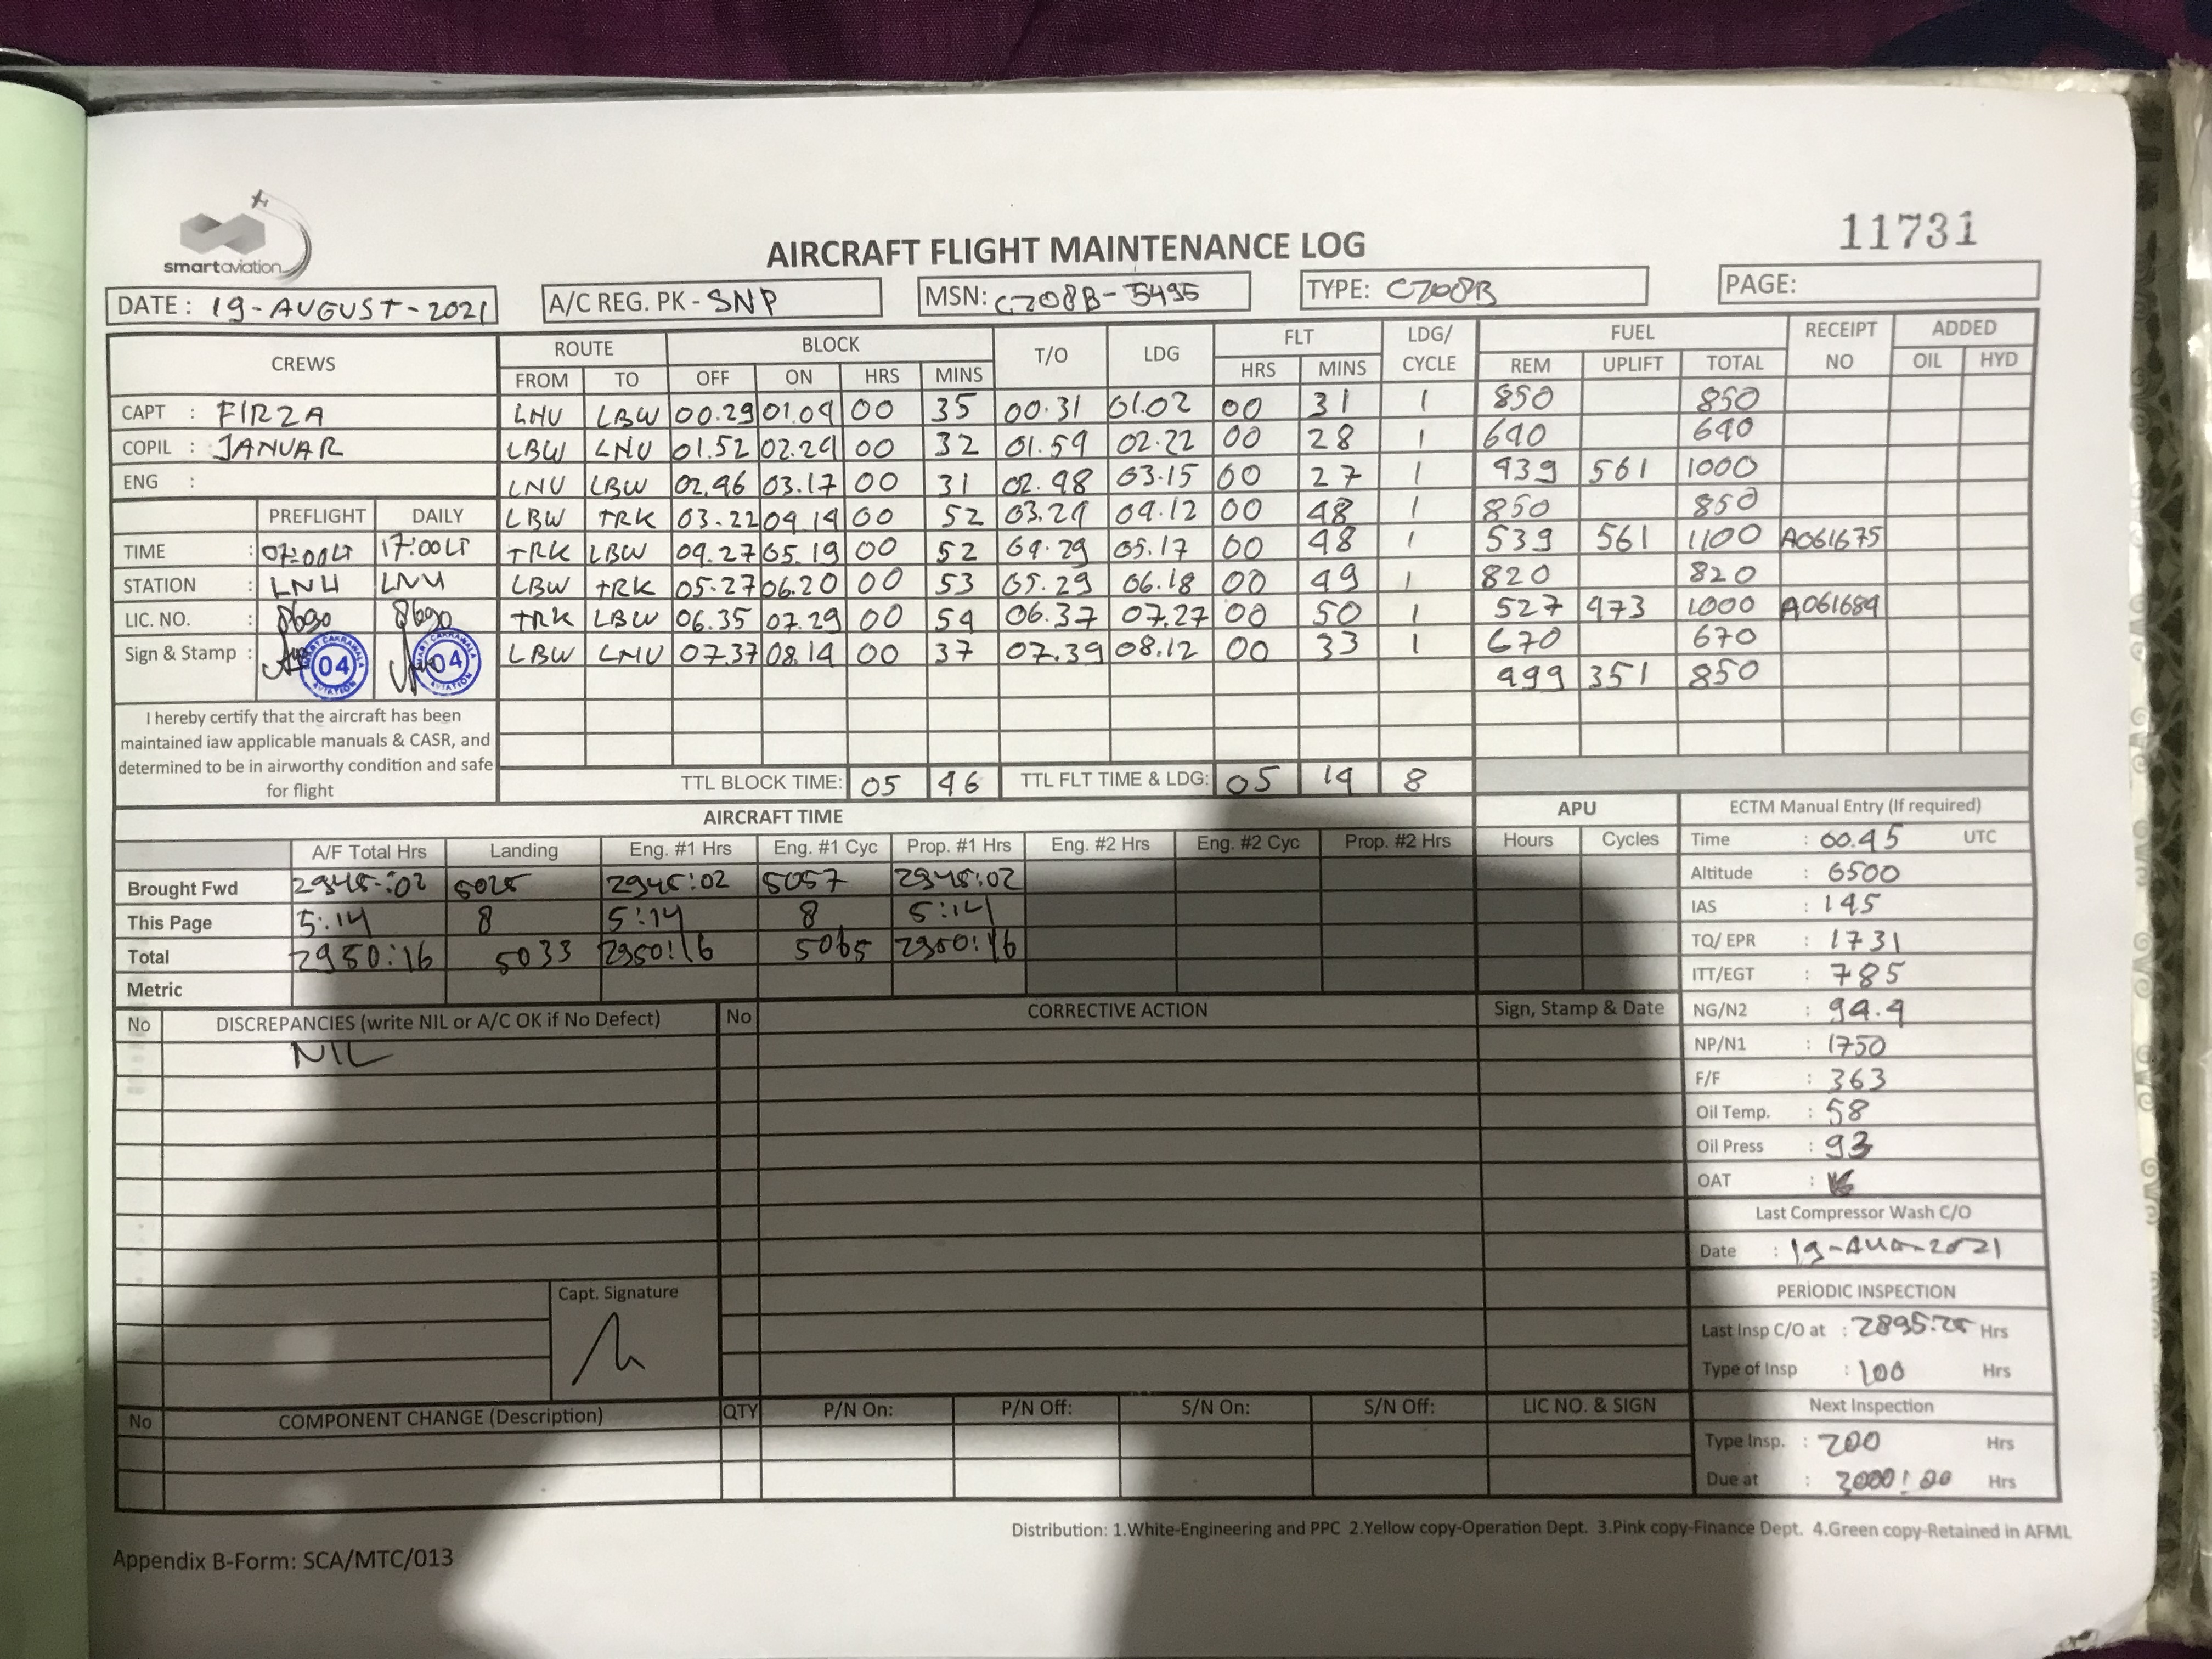 smartaviation
AIRCRAFT FLIGHT MAINTENANCE LOG
11731
DATE : 19-AUGUST-2021 A/C REG. PK - SNP MSN: C208B-5495 TYPE: C208B PAGE:
CREWS ROUTE BLOCK T/O LDG FLT LDG/ CYCLE FUEL RECEIPT NO ADDED
FROM TO OFF ON HRS MINS HRS MINS REM UPLIFT TOTAL OIL HYD
CAPT : FIRZA LNU LBW 00.29 01.04 00 35 00.31 01.02 00 31 1 850 850
COPIL : JANUAR LBW LNU 01.52 02.24 00 32 01.54 02.22 00 28 1 640 640
ENG : LNU LBW 02.46 03.17 00 31 02.48 03.15 00 27 1 439 561 1000
PREFLIGHT DAILY LBW TRK 03.22 04.14 00 52 03.24 04.12 00 48 1 850 850
TIME : 07:00LT 17:00LT TRK LBW 04.27 05.19 00 52 04.29 05.17 00 48 1 539 561 1100 A061675
STATION : LNU LNU LBW TRK 05.27 06.20 00 53 05.29 06.18 00 49 1 820 820
LIC. NO. : 8690 8690 TRK LBW 06.35 07.29 00 54 06.37 07.27 00 50 1 527 473 1000 A061684
Sign & Stamp : 04 04 LBW LNU 07.37 08.14 00 37 07.39 08.12 00 33 1 670 670
499 351 850
I hereby certify that the aircraft has been
maintained iaw applicable manuals & CASR, and
determined to be in airworthy condition and safe
for flight
TTL BLOCK TIME: 05 46 TTL FLT TIME & LDG: 05 14 8
AIRCRAFT TIME APU ECTM Manual Entry (If required)
A/F Total Hrs Landing Eng. #1 Hrs Eng. #1 Cyc Prop. #1 Hrs Eng. #2 Hrs Eng. #2 Cyc Prop. #2 Hrs Hours Cycles
Brought Fwd 2945:02 5025 2945:02 5057 2945:02
This Page 5:14 8 5:14 8 5:14
Total 2950:16 5033 2950:16 5065 2950:16
Metric
Time : 00.45 UTC
Altitude : 6500
IAS : 145
TQ/ EPR : 1731
ITT/EGT : 785
NG/N2 : 94.4
NP/N1 : 1750
F/F : 363
Oil Temp. : 58
Oil Press : 93
OAT : 
Last Compressor Wash C/O
Date : 19-AUG-2021
PERIODIC INSPECTION
Last Insp C/O at : 2895:25 Hrs
Type of Insp : 100 Hrs
Next Inspection
Type Insp. : 200 Hrs
Due at : 3000:00 Hrs
No DISCREPANCIES (write NIL or A/C OK if No Defect) No CORRECTIVE ACTION Sign, Stamp & Date
NIL
Capt. Signature
No COMPONENT CHANGE (Description) QTY P/N On: P/N Off: S/N On: S/N Off: LIC NO. & SIGN
Distribution: 1.White-Engineering and PPC 2.Yellow copy-Operation Dept. 3.Pink copy-Finance Dept. 4.Green copy-Retained in AFML
Appendix B-Form: SCA/MTC/013